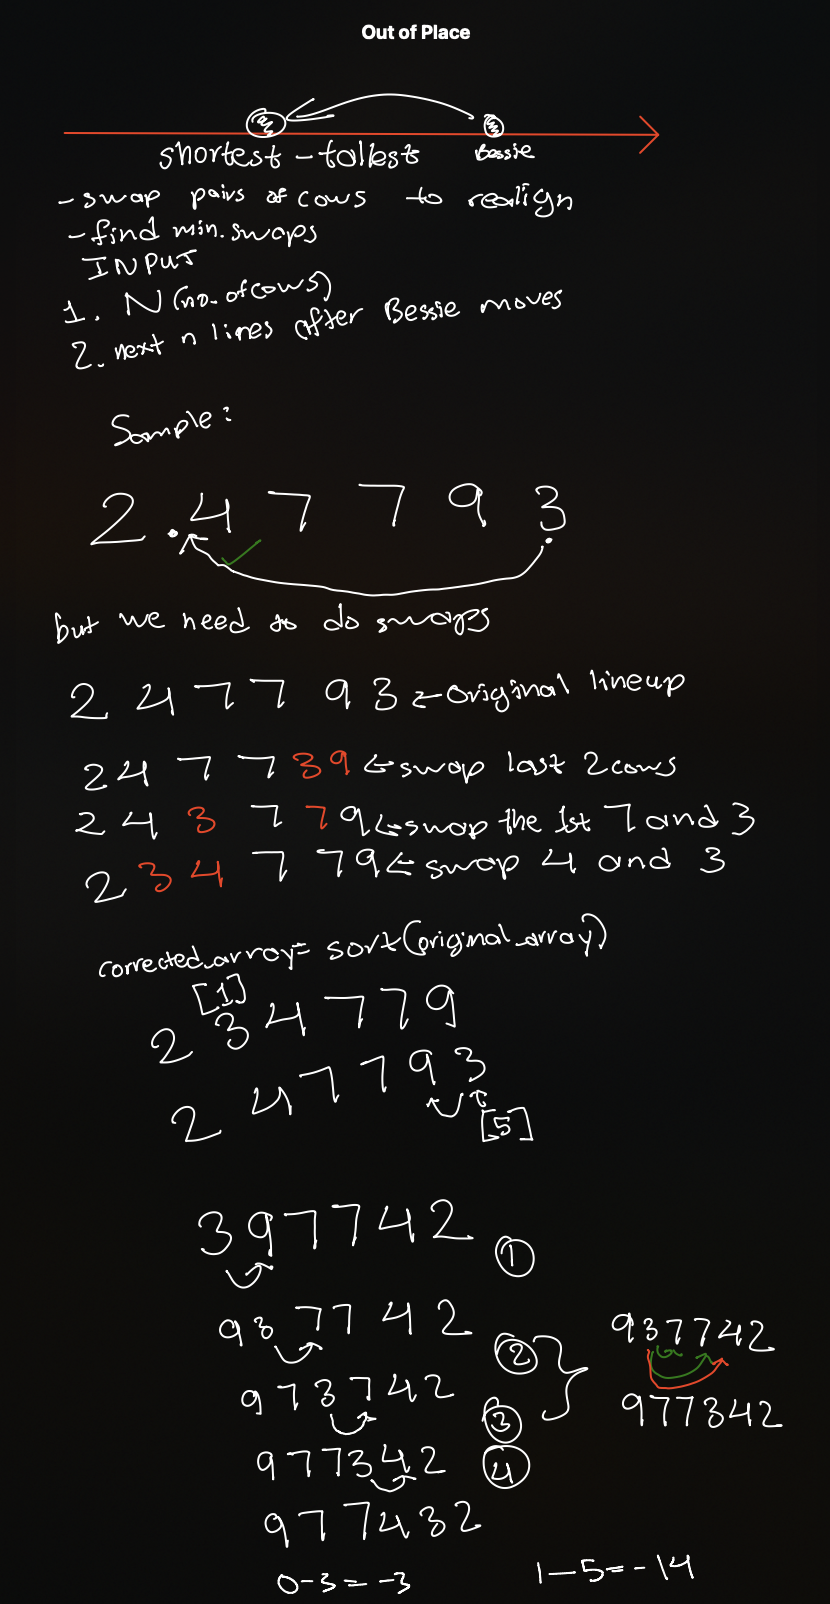 Out of Place
shortest - tallests
Bessie
- swap pairs of cows to realign
- find min. swaps
INPUT
1. N (no. of cows)
2. next n lines after Bessie moves
Sample:
2 . 4 7 7 9 3
but we need to do swaps
2 4 7 7 9 3 ← original lineup
2 4 7 7 3 9 ← swap last 2 cows
2 4 3 7 7 9 ← swap the 1st 7 and 3
2 3 4 7 7 9 ← swap 4 and 3
corrected_array = sort(original_array)
[1]
2 3 4 7 7 9
2 4 7 7 9 3
[5]
3 9 7 7 4 2 ①
9 3 7 7 4 2 ②
9 3 7 7 4 2
9 7 3 7 4 2 ③
9 7 7 3 4 2
9 7 7 3 4 2 ④
9 7 7 4 3 2
0-3 = -3
1-5 = -14